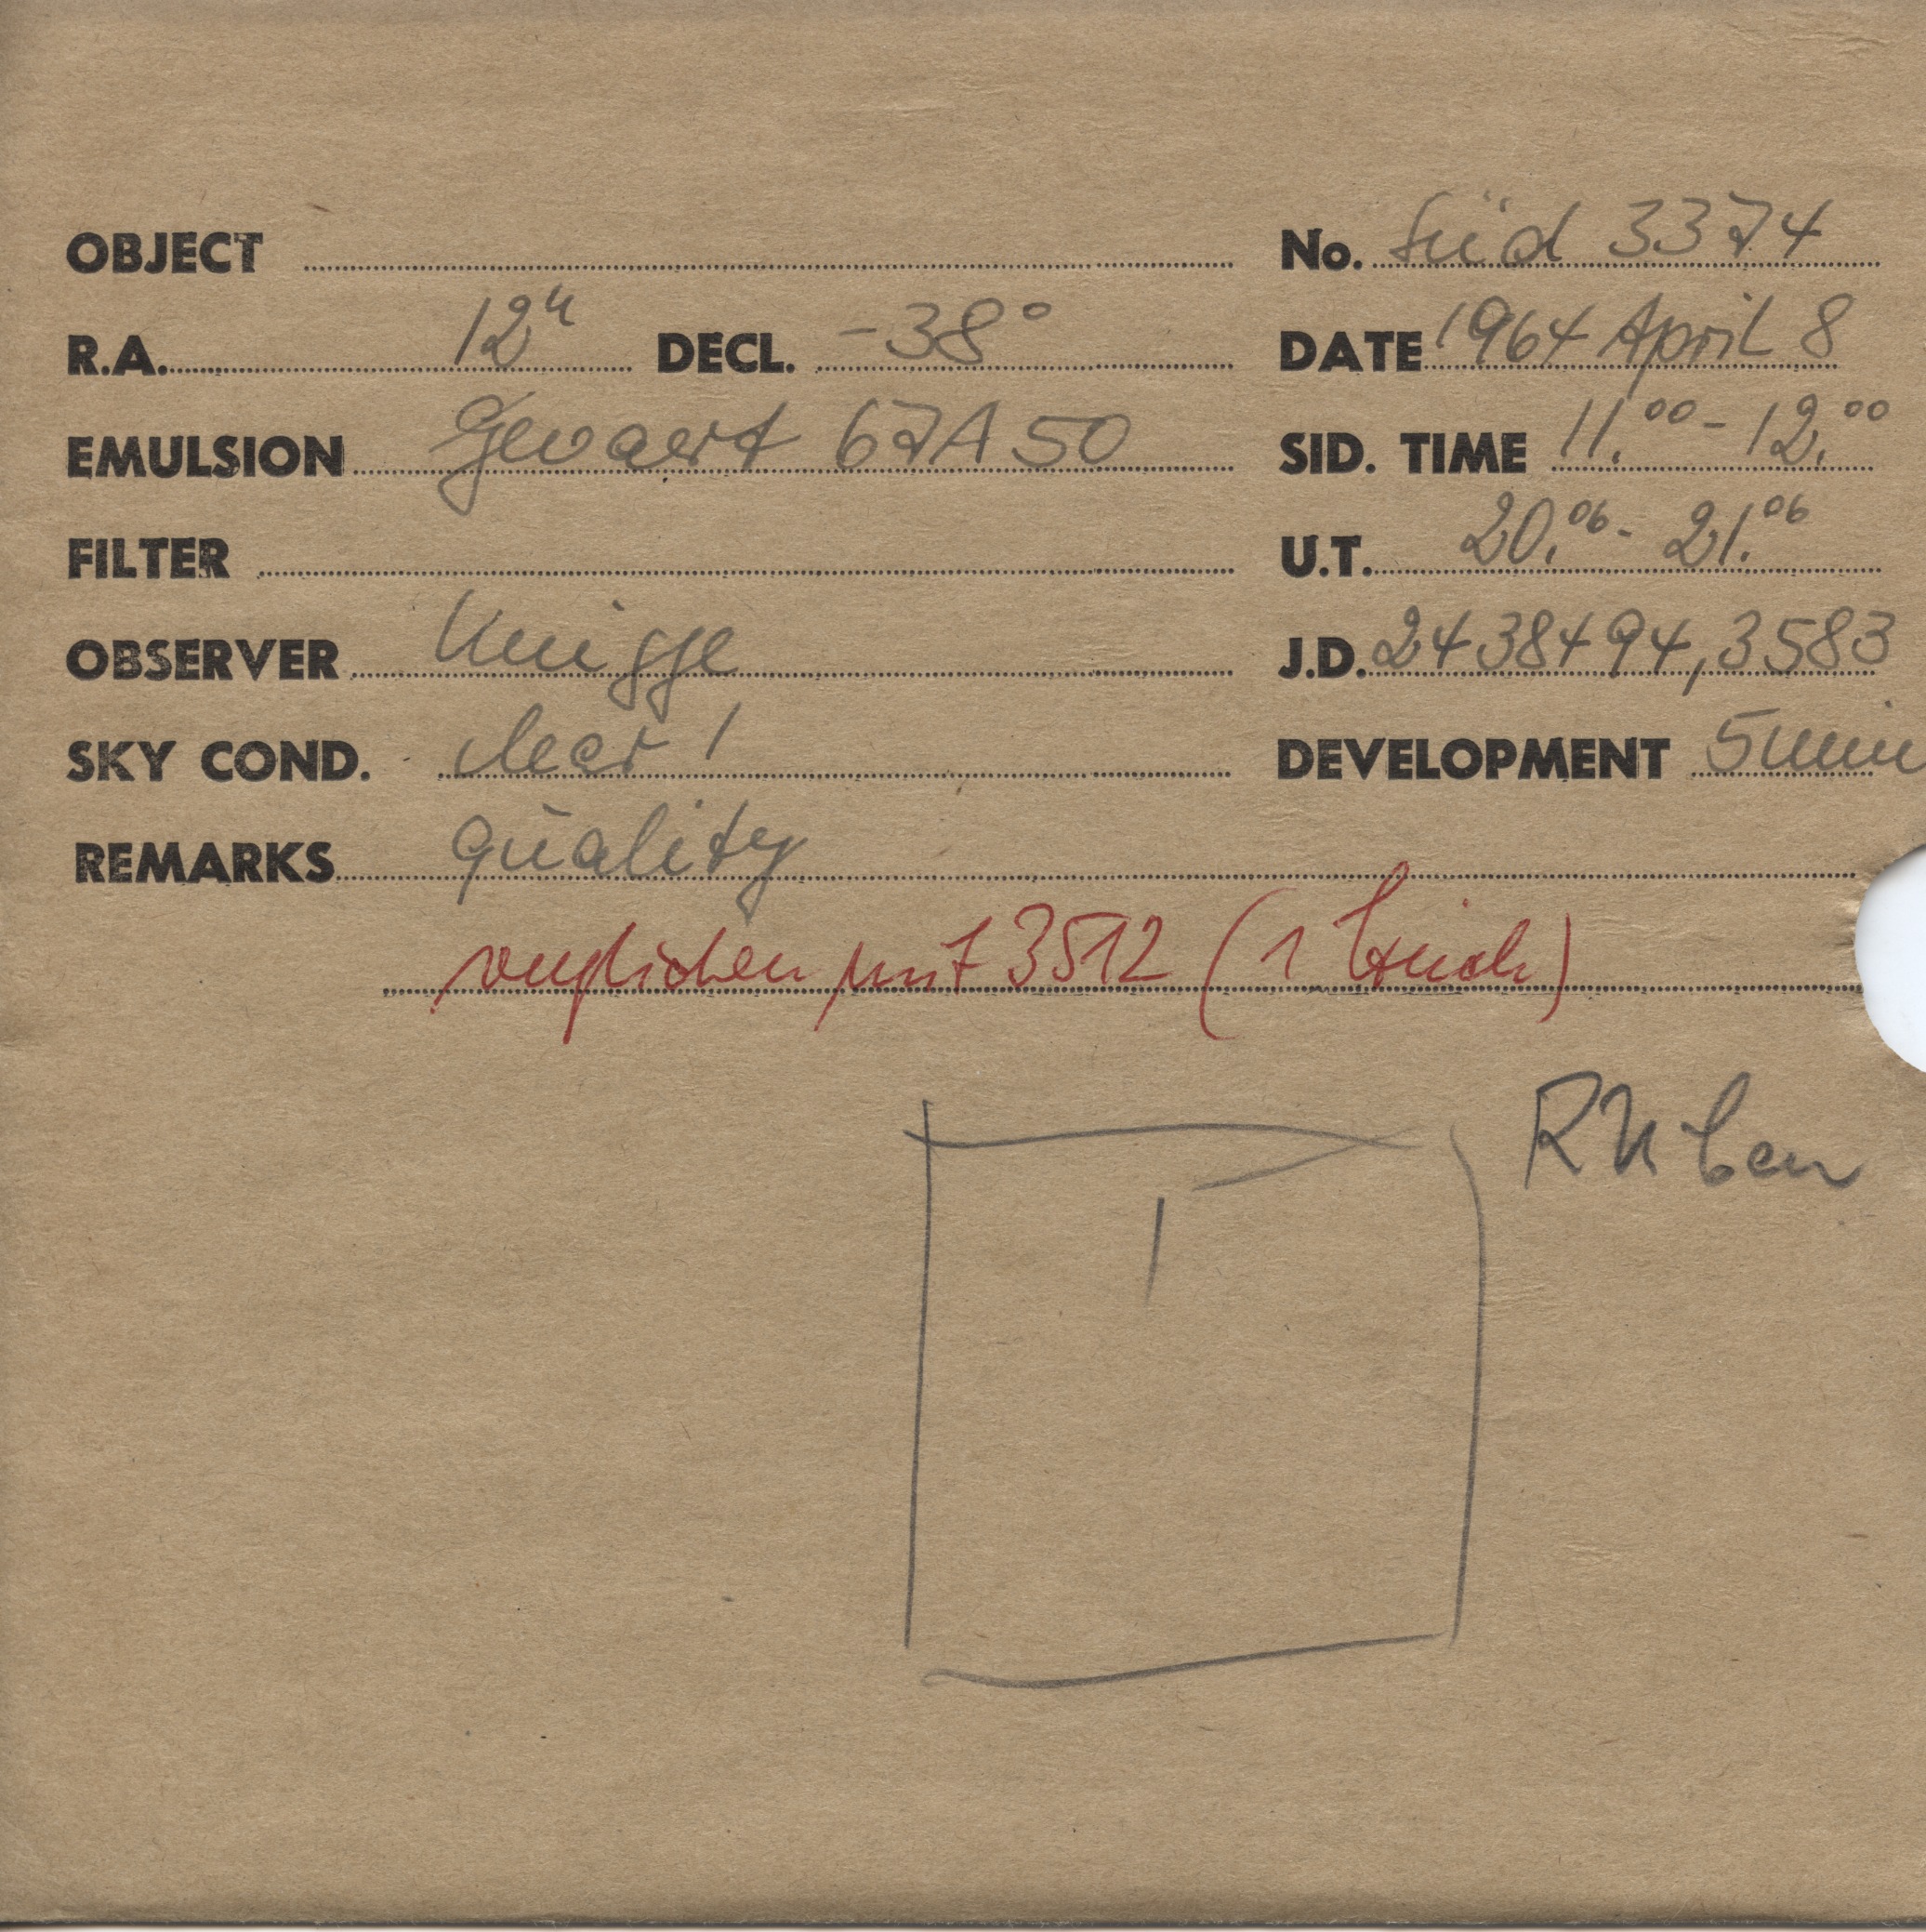 OBJECT No. Süd 3374
R.A. 12h DECL. -38° DATE 1964 April 8
EMULSION Gevaert 67A50 SID. TIME 11.00 - 12.00
FILTER U.T. 20.06 - 21.06
OBSERVER Knigge J.D. 2438494,3583
SKY COND. clear! DEVELOPMENT 5 min
REMARKS quality
verglichen mit 3512 (1 Strich)